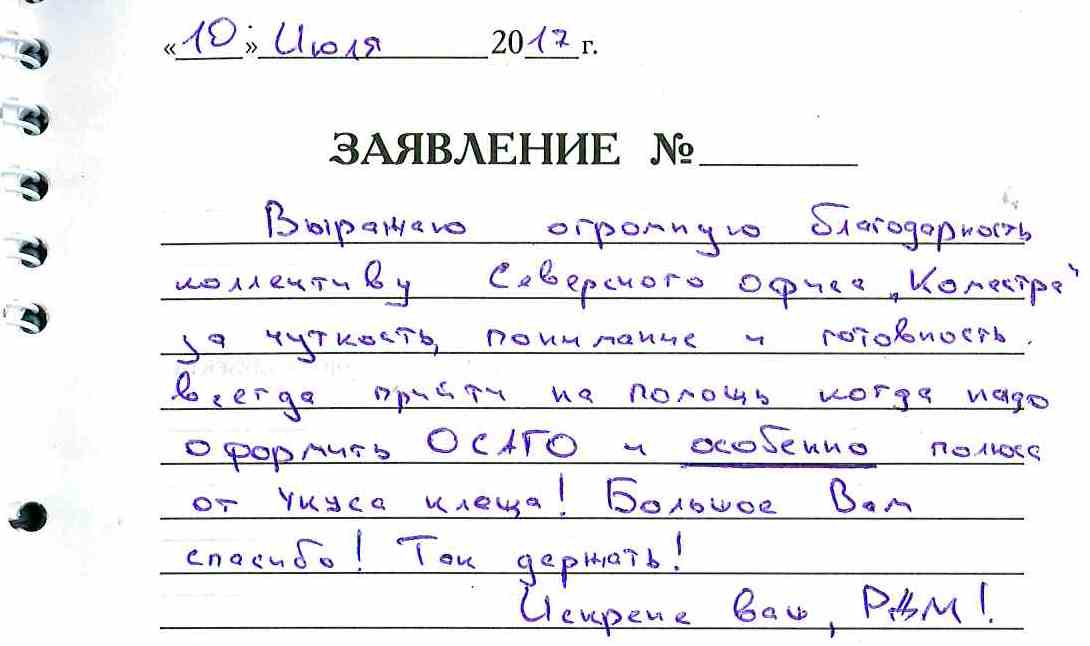 «10» Июля 2017 г.
ЗАЯВЛЕНИЕ №
Выражаю огромную благодарность
коллективу Северского офиса „Коместра"
за чуткость, понимание и готовность
всегда прийти на помощь когда надо
оформить ОСАГО и особенно полюса
от укуса клеща! Большое Вам
спасибо! Так держать!
Искрене ваш, РДВМ!